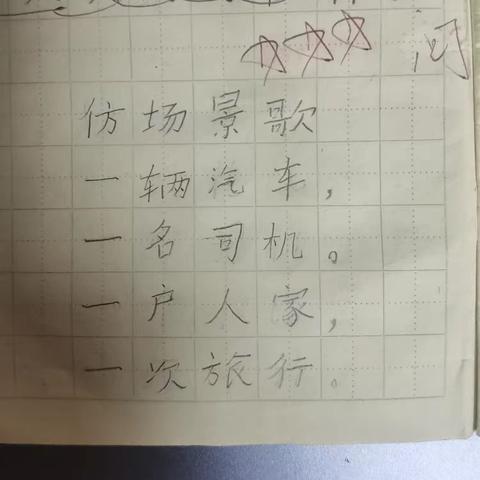 仿场景歌
一辆汽车，
一名司机。
一户人家，
一次旅行。